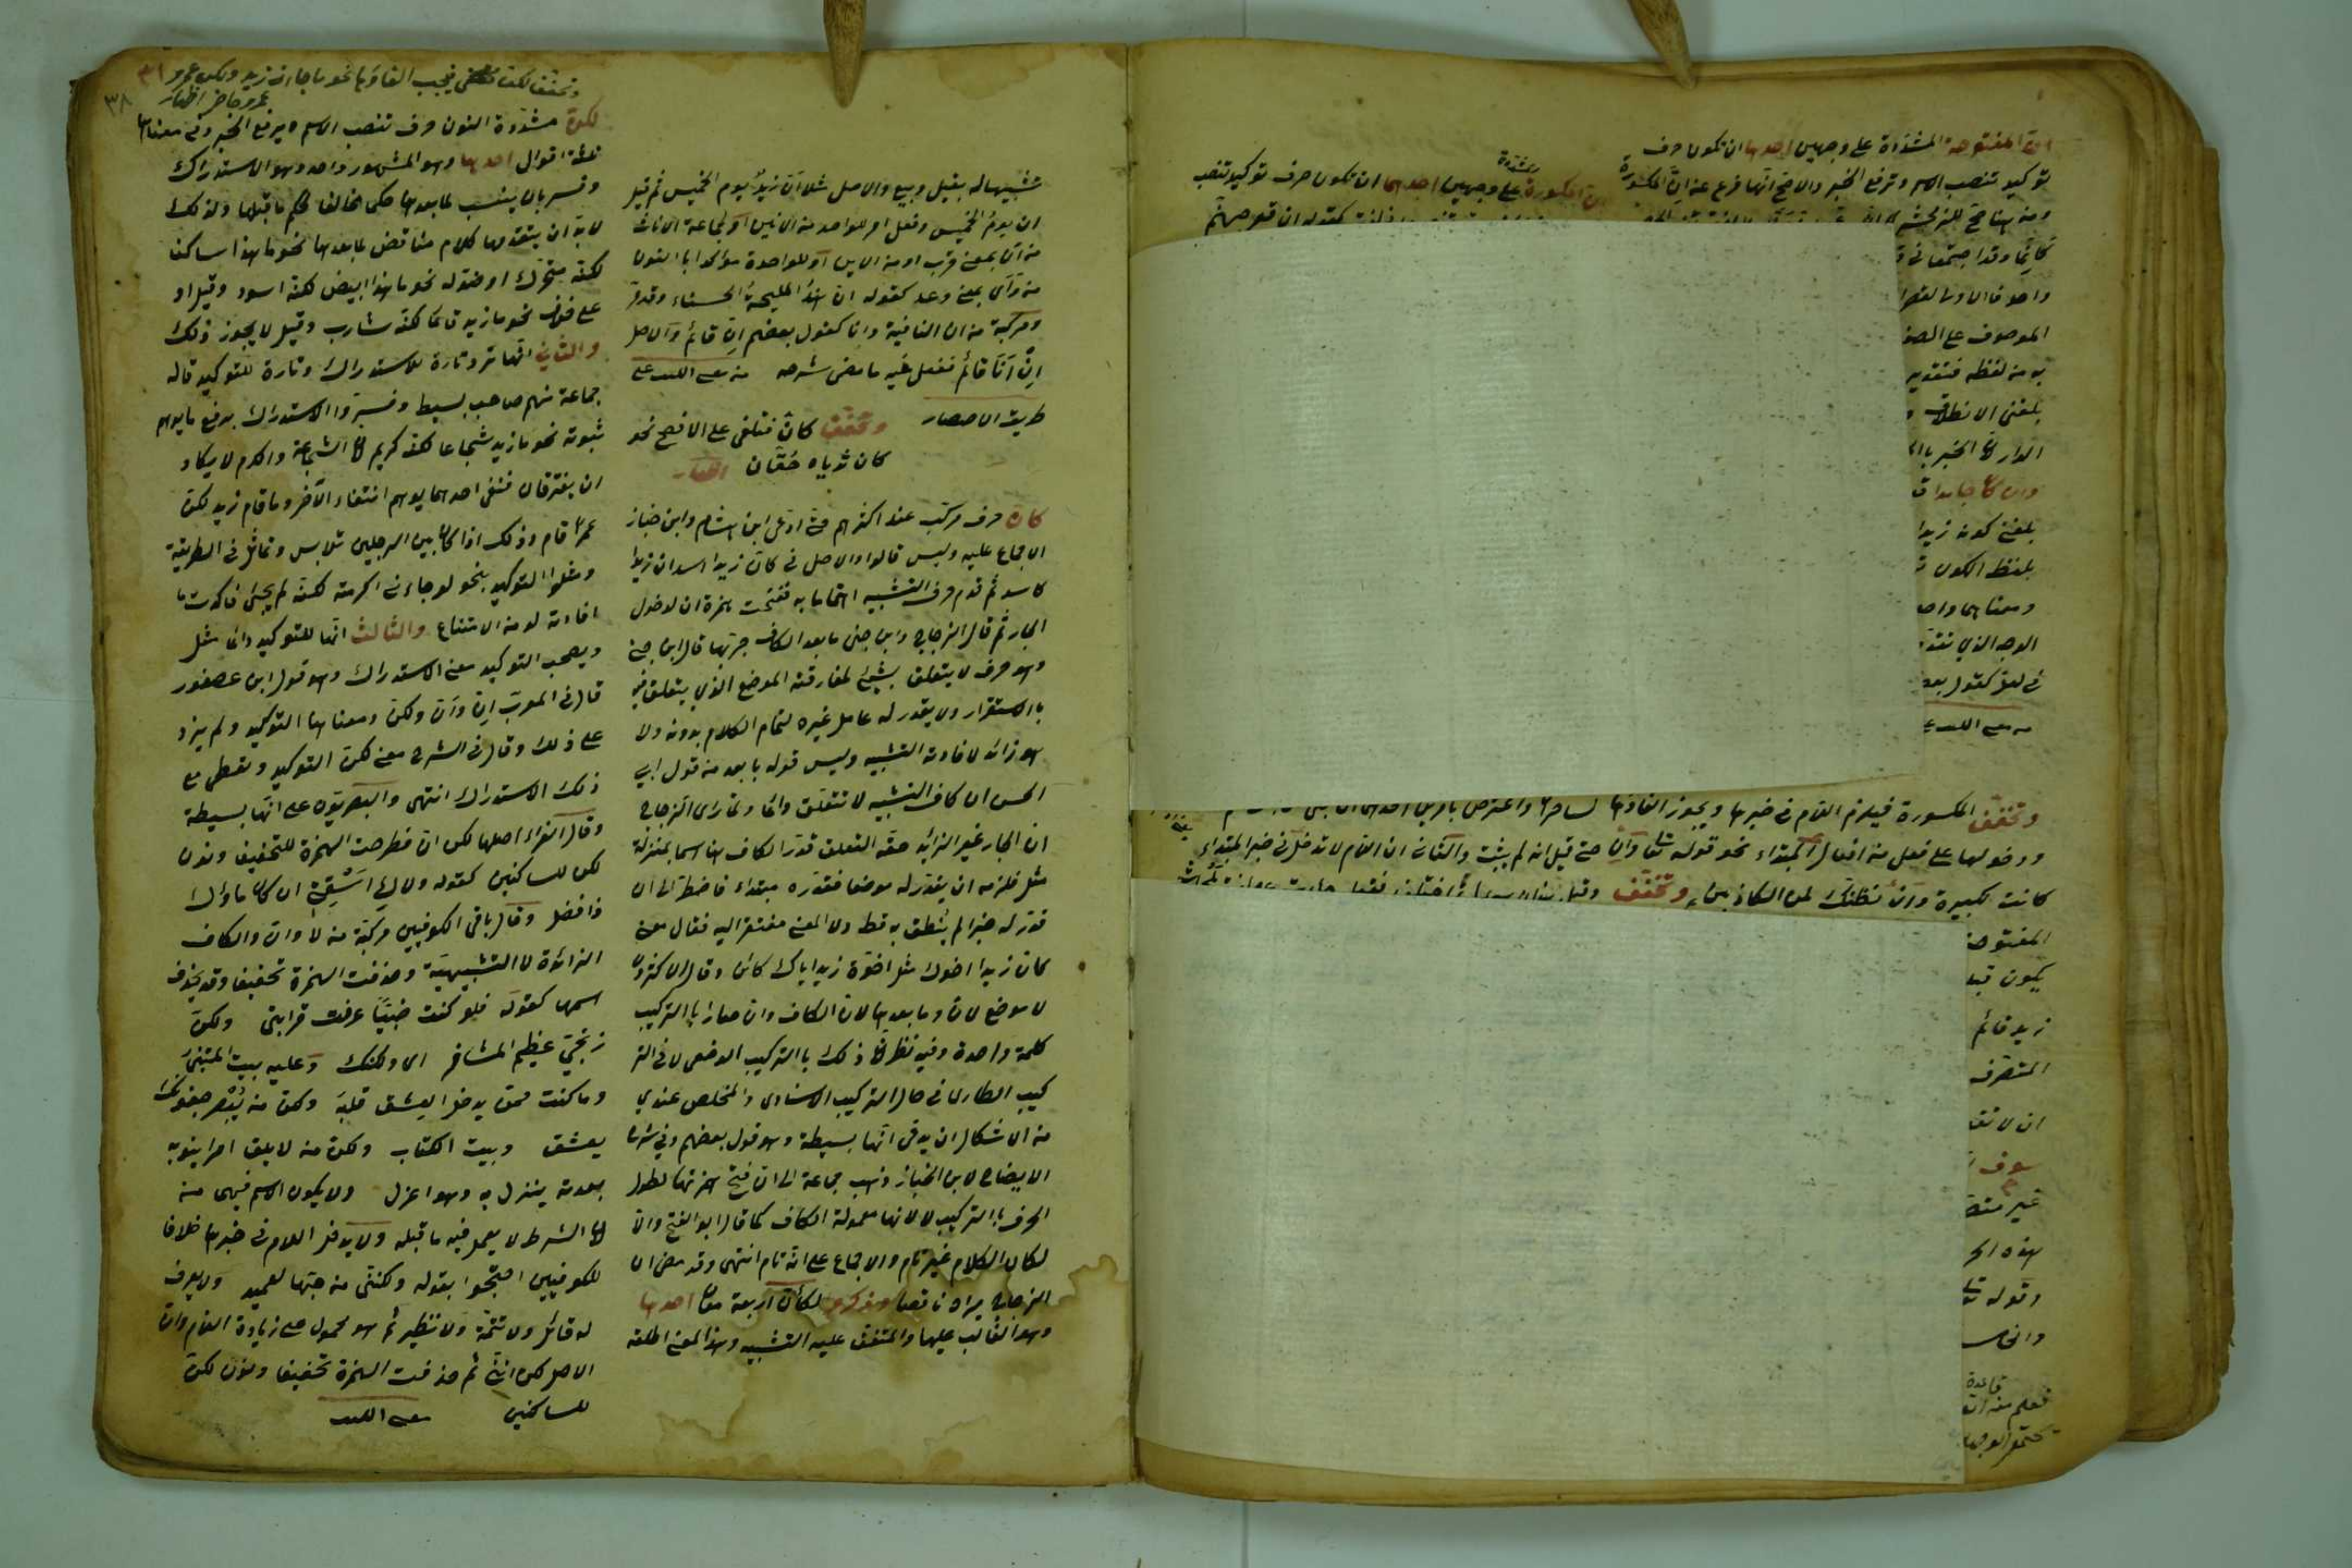 ان المفتوحة المشددة على وجهين احدهما ان تكون حرف
توكيد تنصب الاسم وترفع الخبر والاصح انها فرع عن ان المكسورة
ومن هنا صح للزمخشري
واحد فالاول
الموصوف على الصفة
به من لفظه فتقدير
بلغني الانطلاق
الدار الخبر
وان كان جامدا
بلغني كونه زيدا
بلفظ الكون
ومعناهما واحد
الوجه الذي تقدم
في لعل كقول بعض
المكسورة على وجهين احدهما ان تكون حرف توكيد تنصب
وتخفف المكسورة فيلزم اللام في خبرها ويجوز الغاؤها
ودخولها على فعل من افعال المبتداء نحو قوله تعا وان
كانت لكبيرة وان نظنك لمن الكاذبين وتخفف
المفتوحة
يكون قبل
زيد قائم
المتصرف
ان لا
سوف
غير
هذه
وقوله تعا
فعلم منه
تشبيها له بقيل وبيع والاصل مثلا ان زيد يوم الخميس ثم قيل
ان يوم الخميس وفعل امر للواحد من الانين او لجماعة الاناث
من ان بمعنى قرب او من الاين او للواحدة مؤكدا بالنون
من وأى بمعنى وعد كقوله ان هند المليحة الحسناء وقد مر
ومركبة من ان النافية وانا كقول بعضهم ان قائم والاصل
ان انا قائم ففعل فيه ما مضى شرحه من مغني اللبيب على
طريق الاختصار
وتخفف كان فتلغى على الافصح نحو
كان ثدياه حقان اظهار
كان حرف مركب عند اكثرهم حتى ادعى ابن هشام وابن خباز
الاجماع عليه وليس قالوا والاصل في كان زيدا اسد ان زيدا
كاسد ثم قدم حرف التشبيه اهتماما به ففتحت همزة ان لدخول
الجار ثم قال الزجاج وابن جني ما بعد الكاف جر بها قال ابن جني
وهو حرف لا يتعلق بشيء لمفارقته الموضع الذي يتعلق فيه
بالاستقرار ولا يقدر له عامل غيره لتمام الكلام بدونه ولا
هو زائد لافادته التشبيه وليس قوله بابعد من قول ابي
الحسن ان كاف التشبيه لا تتعلق دائما ولما راى الزجاج
ان الجار غير الزائد حقه التعلق قدر الكاف هنا اسما بمنزلة
مثل فلزمه ان يقدر له موضعا فقدره مبتداء فاضطر الى ان
قدر له خبرا لم ينطق به قط ولا المعنى مفتقر اليه فقال معنى
كان زيدا اخوك مثل اخوة زيد اياك كائن وقال الاكثرون
لا موضع لان وما بعدها لان الكاف وان صارا بالتركيب
كلمة واحدة وفيه نظر لان ذلك بالتركيب الوضعي لا في التر
كيب الطارئ في حال التركيب الاسنادي والمخلص عندي
من الاشكال ان يدعى انها بسيطة وهو قول بعضهم وفي شرح
الايضاح لابن الخباز ذهب جماعة الى ان فتح همزتها لطول
الحرف بالتركيب لا لانها معمولة الكاف كما قال ابو الفتح والا
لكان الكلام غير تام والاجماع على انه تام انتهى وقد مضى ان
الزجاج يراه ناقصا وذكروا لكان اربعة معان احدها
وهو الغالب عليها والمتفق عليه التشبيه وهذا المعنى اطلقه
٣٨ ٣١
وتخفف لكن فيجب الغاؤها نحو ما جاءني زيد ولكن عمرو
عمرو حاضر اظهار
لكن مشددة النون حرف تنصب الاسم ويرفع الخبر وفي معناها
ثلثة اقوال احدها وهو المشهور واحد وهو الاستدراك
وفسر بان ينسب لما بعدها حكم مخالف لحكم ما قبلها ولذلك
لابد ان يتقدمها كلام مناقض لما بعدها نحو ما هذا ساكنا
لكنه متحرك او ضد له نحو ما هذا ابيض لكنه اسود وقيل او
على خلاف نحو ما زيد قائما لكنه شارب وقيل لا يجوز ذلك
والثاني انها ترد تارة للاستدراك وتارة للتوكيد قاله
جماعة منهم صاحب بسيط وفسروا الاستدراك برفع ما يوهم
ثبوته نحو ما زيد شجاعا لكنه كريم لان الشجاعة والكرم لا يكاد
ان يفترقان فنفي احدهما يوهم انتفاء الآخر وما قام زيد لكن
عمرا قام وذلك اذا كان بين الرجلين تلابس وتماثل في الطريقة
ومثلوا التوكيد بنحو لو جاءني اكرمته لكنه لم يجئ فاكدت ما
افادته لو من الامتناع والثالث انها للتوكيد دائما مثل
ويصحب التوكيد معنى الاستدراك وهو قول ابن عصفور
قال في المعرب ان وان ولكن ومعناها التوكيد ولم يزد
على ذلك وقال في الشرح معنى لكن التوكيد وتعطي مع
ذلك الاستدراك انتهى والبصريون على انها بسيطة
وقال الفراء اصلها لكن ان فطرحت الهمزة للتخفيف ونون
لكن للساكنين كقوله ولاك اسقني ان كان ماؤك
ذا فضل وقال باقي الكوفيين مركبة من لا وان والكاف
الزائدة لا التشبيهية وحذفت الهمزة تخفيفا وقد يحذف
اسمها كقوله فلو كنت ضبيا عرفت قرابتي ولكن
زنجي عظيم المشافر اى ولكنك وعليه بيت المتنبي
وما كنت ممن يدخل العشق قلبه ولكن من يبصر جفونك
يعشق وبيت الكتاب ولكن من لا يلق امرا ينوبه
بعدته ينزل به وهو اعزل ولا يكون الاسم فيهما من
لان الشرط لا يعمل فيه ما قبله ولا يدخل اللام في خبرها خلافا
للكوفيين احتجوا بقوله ولكنني من حبها لعميد ولا يعرف
له قائل ولا تتمة ولا نظير ثم هو محمول على زيادة اللام وان
الاصل لكن انني ثم حذفت الهمزة تخفيفا ونون لكن
للساكنين مغني اللبيب